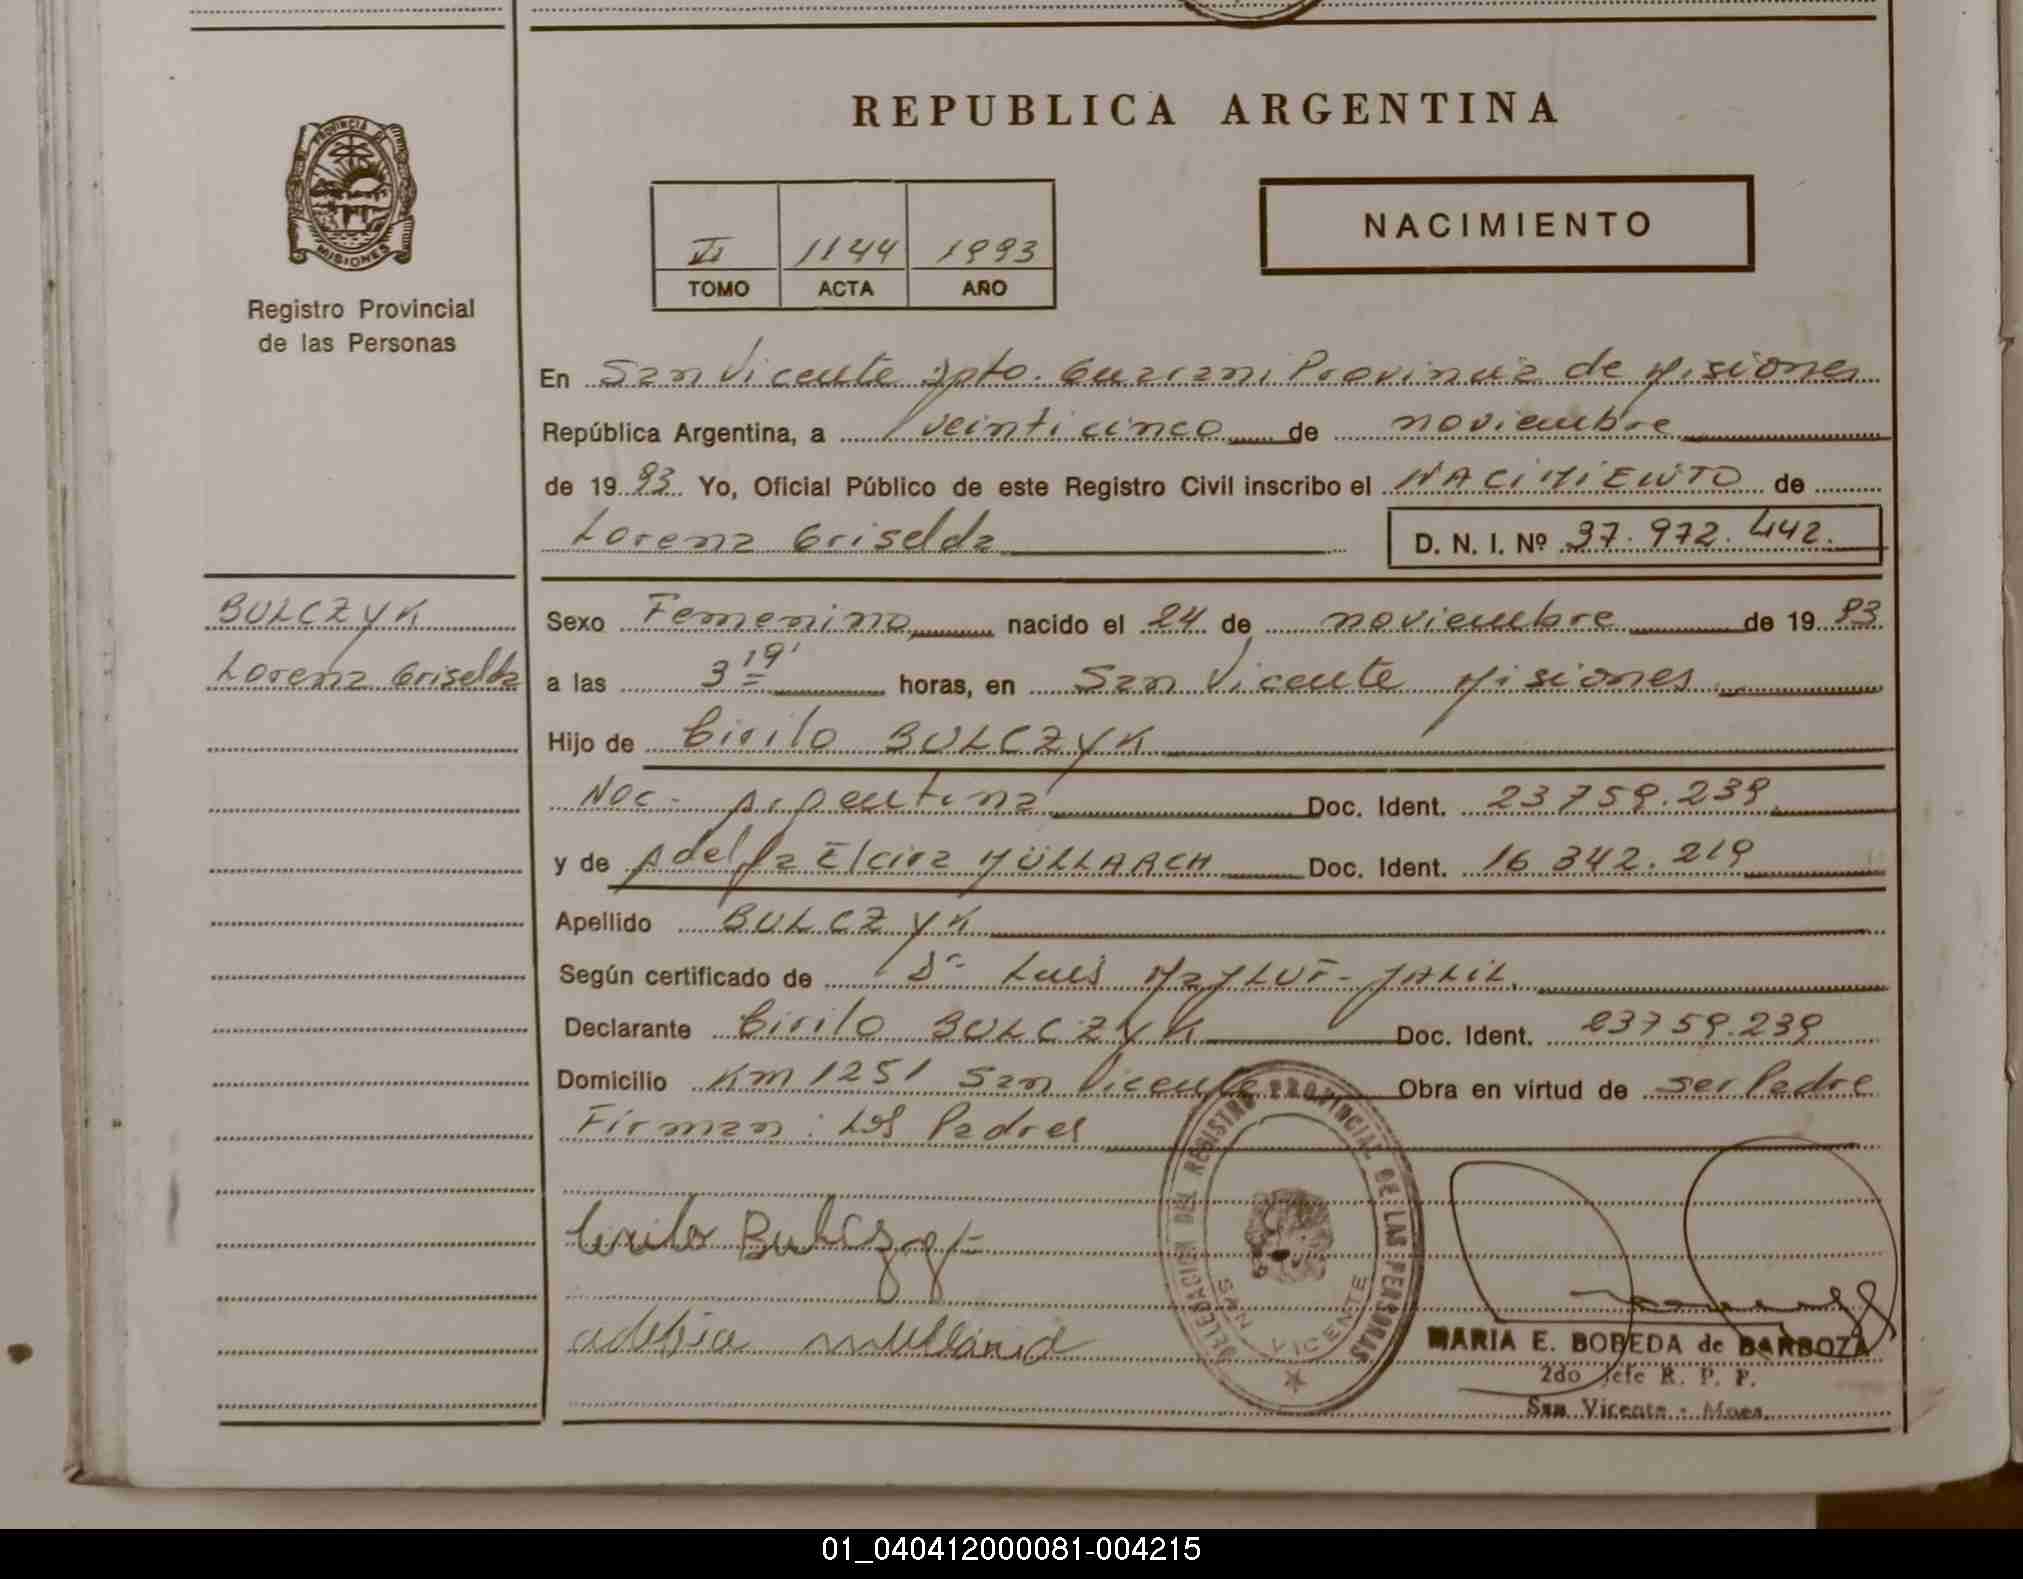 REPUBLICA ARGENTINA
PROVINCIA DE
MISIONES
Registro Provincial
de las Personas
VI 1144 1993
TOMO ACTA AÑO
NACIMIENTO
En San Vicente Dpto. Guarani Provincia de Misiones
República Argentina, a veinticinco de noviembre
de 1993 Yo, Oficial Público de este Registro Civil inscribo el NACIMIENTO de
Lorena Griselda D. N. I. Nº 37.972.442.
BULCZYK
Lorena Griselda
Sexo Femenino nacido el 24 de noviembre de 1993
a las 3 19' horas, en San Vicente Misiones
Hijo de Cirilo BULCZYK
Nac- Argentina Doc. Ident. 23759.239
y de Adelfa Elcira MÜLLARCH Doc. Ident. 16342.219
Apellido BULCZYK
Según certificado de Dr Luis JALIL.
Declarante Cirilo BULCZYK Doc. Ident. 23759.239
Domicilio Km 1251 San Vicente Obra en virtud de ser Padre
Firman: Los Padres
Cirilo
DELEGACION DEL REGISTRO PROVINCIAL DE LAS PERSONAS
SAN VICENTE
MARIA E. BOBEDA de BARBOZA
2do Jefe R. P. P.
San Vicente - Mnes.
01_040412000081-004215